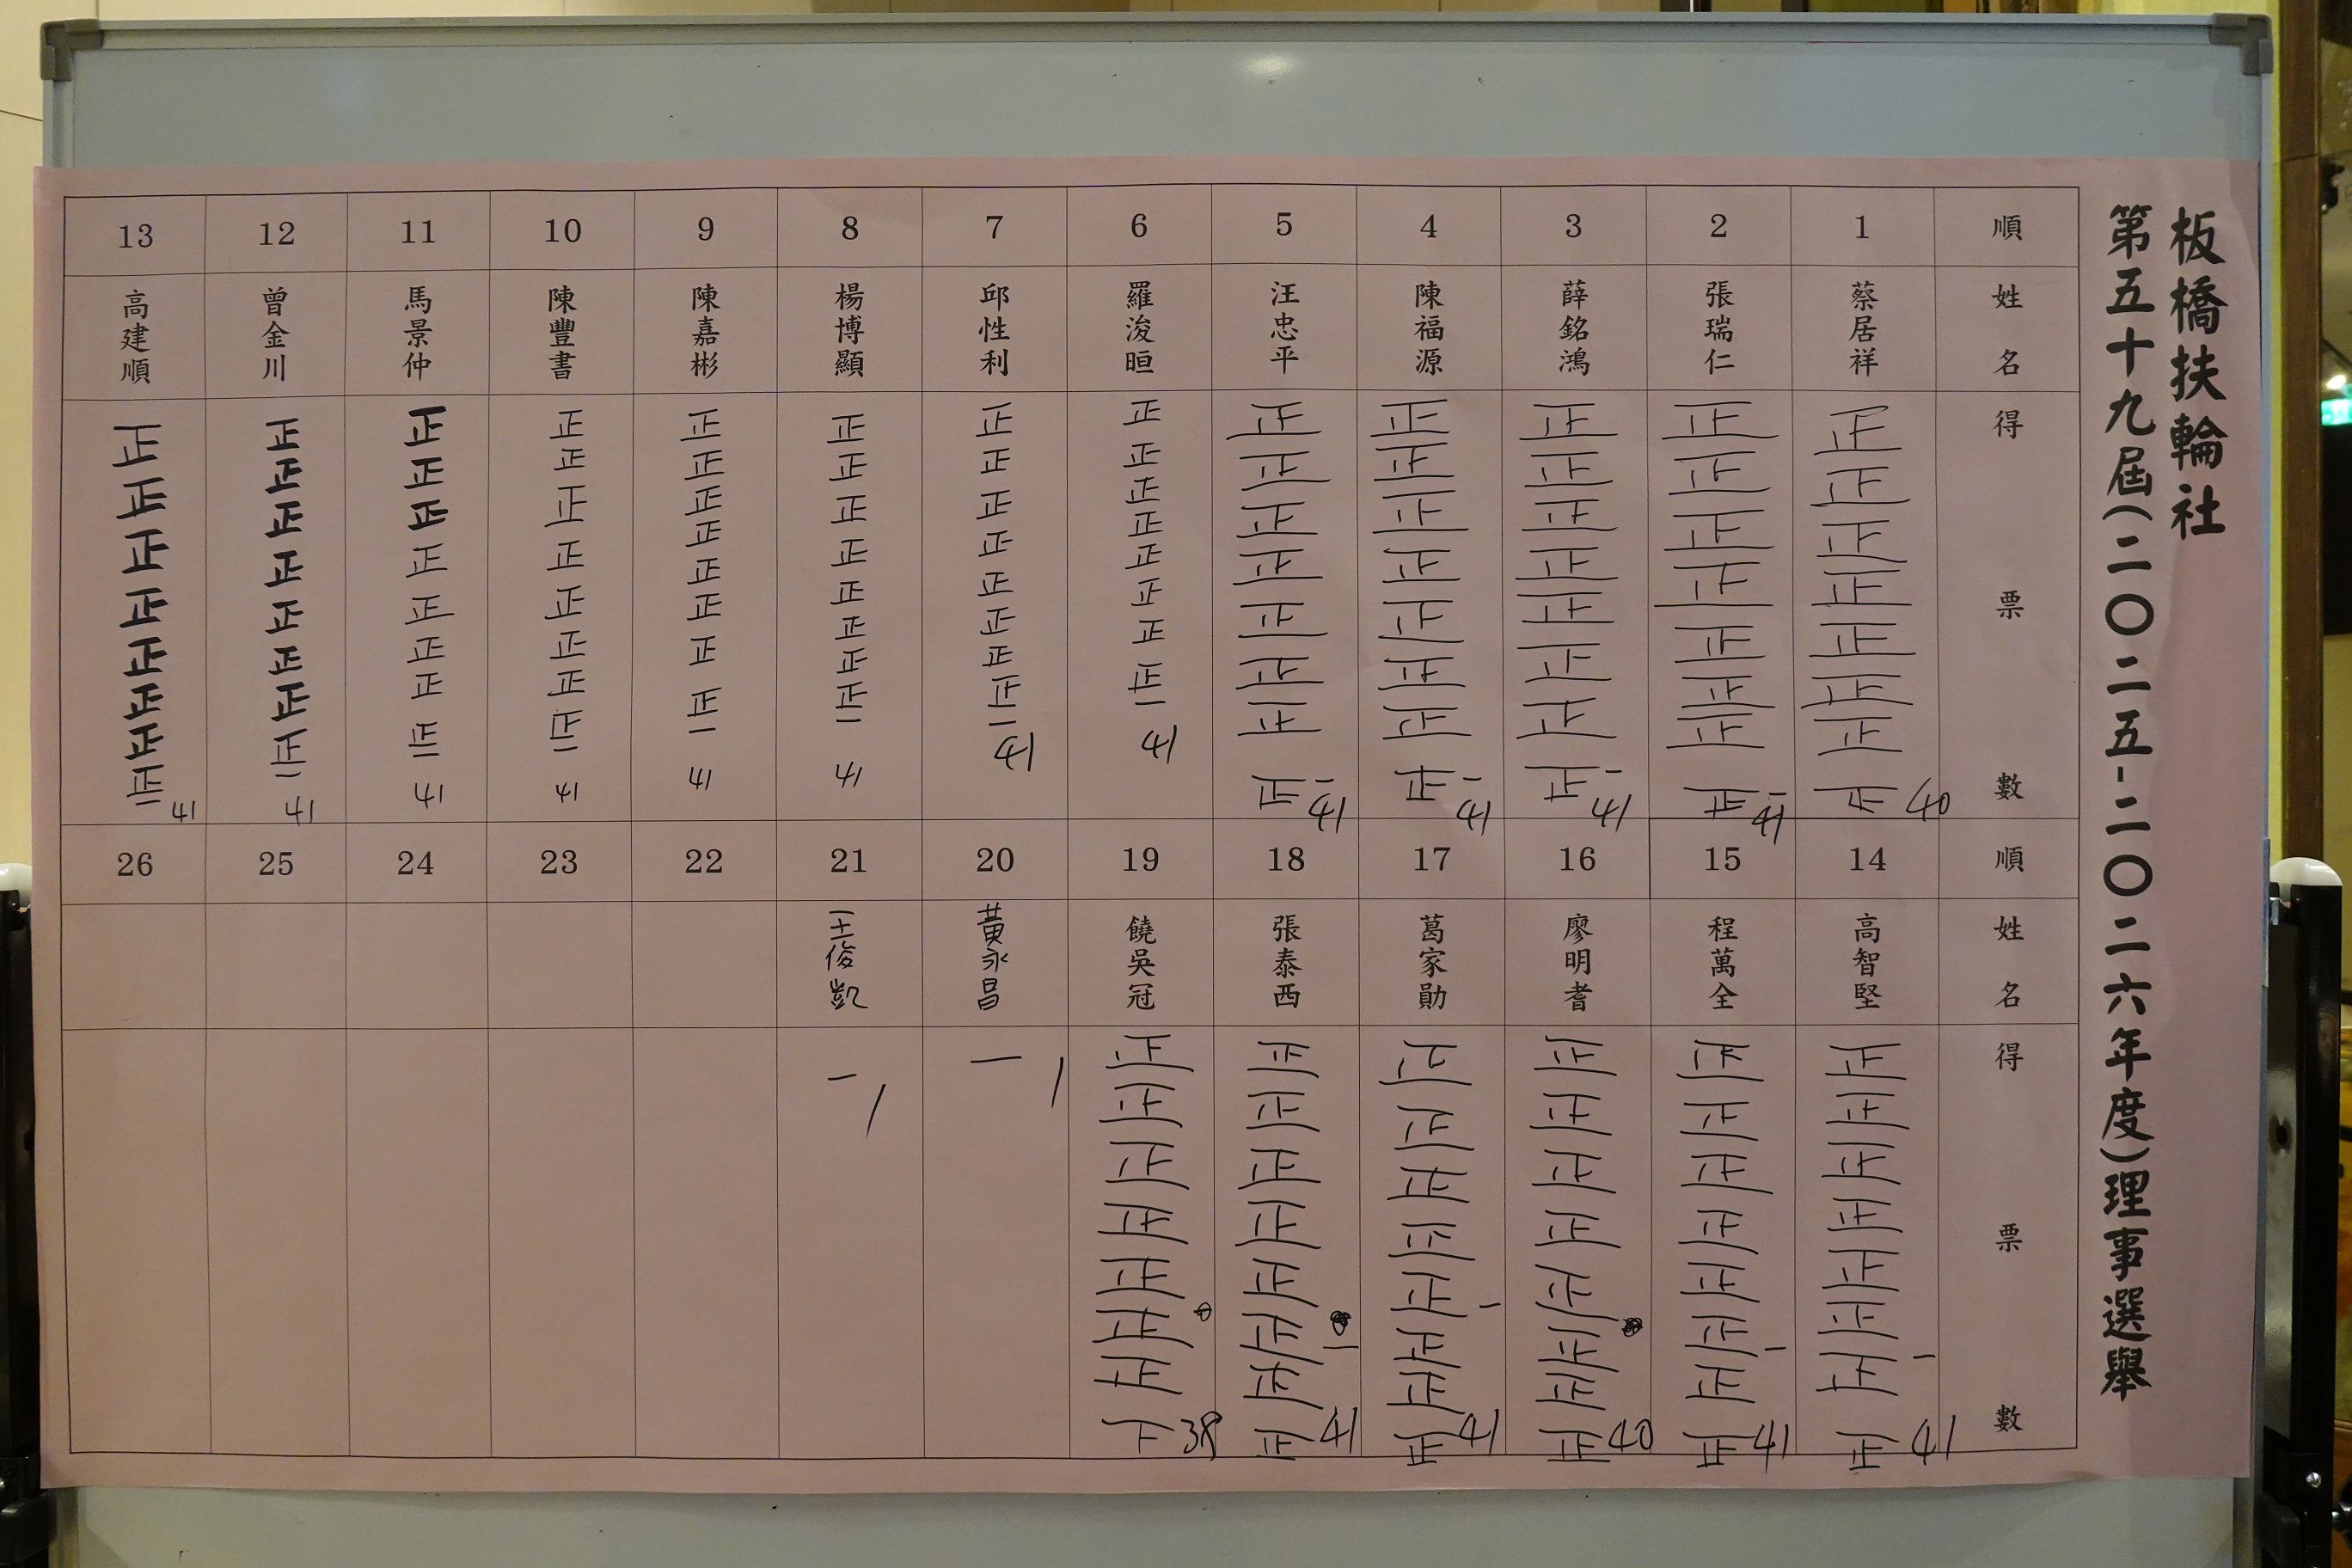 板橋扶輪社
第五十九屆(二〇二五-二〇二六年度)理事選舉
順 1 2 3 4 5 6 7 8 9 10 11 12 13
姓名 蔡居祥 張瑞仁 薛銘鴻 陳福源 汪忠平 羅浚晅 邱性利 楊博顯 陳嘉彬 陳豐書 馬景仲 曾金川 高建順
得票數 正正正正正正正正 40 正正正正正正正正一 41 正正正正正正正正一 41 正正正正正正正正一 41 正正正正正正正正一 41 正正正正正正正正一 41 正正正正正正正正一 41 正正正正正正正正一 41 正正正正正正正正一 41 正正正正正正正正一 41 正正正正正正正正一 41 正正正正正正正正一 41 正正正正正正正正一 41
順 14 15 16 17 18 19 20 21 22 23 24 25 26
姓名 高智堅 程萬全 廖明耆 葛家勛 張泰西 饒吳冠 黃永昌 王俊凱
得票數 正正正正正正正正一 41 正正正正正正正正一 41 正正正正正正正正 40 正正正正正正正正一 41 正正正正正正正正一 41 正正正正正正正下 38 一 1 一 1